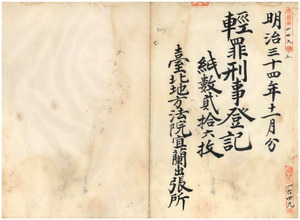 明治三十四年十一月分
輕罪刑事登記
紙數貳拾六枚
臺北地方法院宜蘭出張所